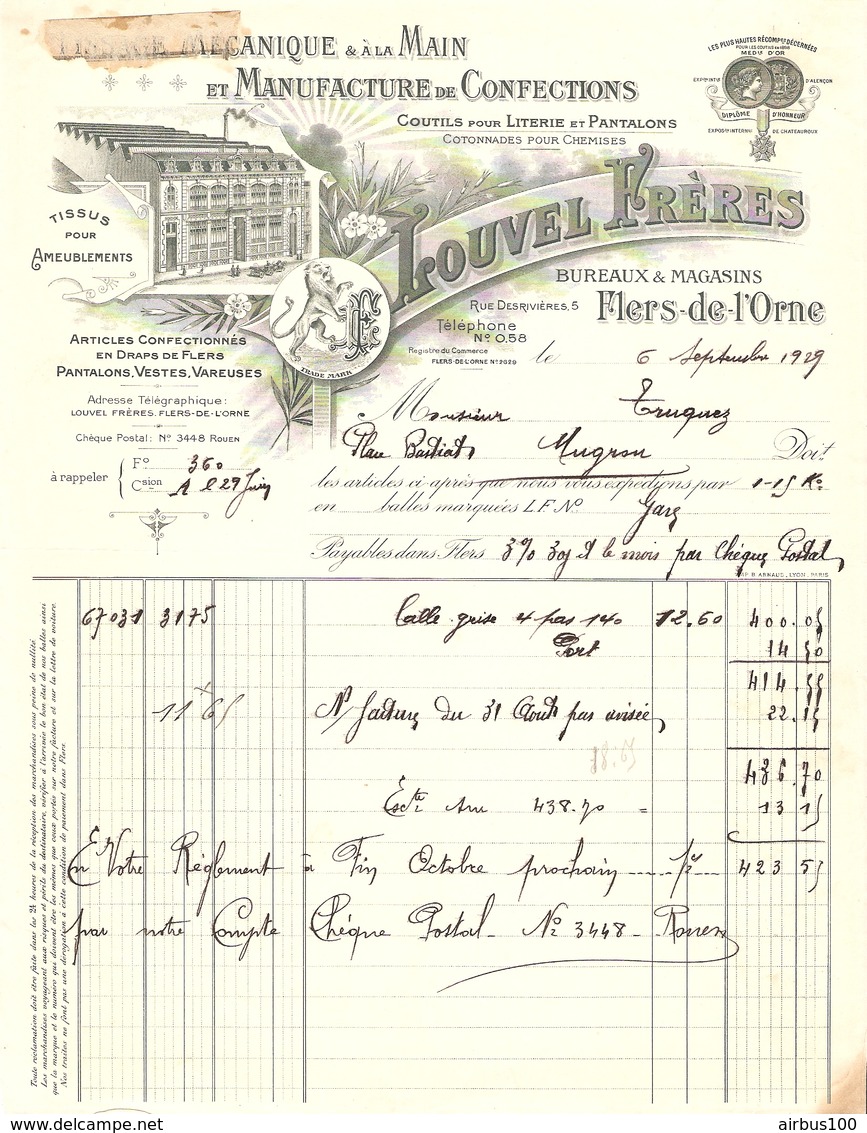 MÉCANIQUE & À LA MAIN
ET MANUFACTURE DE CONFECTIONS
COUTILS POUR LITERIE ET PANTALONS
COTONNADES POUR CHEMISES
LES PLUS HAUTES RÉCOMPses DÉCERNÉES
POUR LES COUTILS EN 1898
MEDles D'OR
EXPOson INTle D'ALENÇON
DIPLÔME D'HONNEUR
EXPOSon INTERNle DE CHATEAUROUX
TISSUS
POUR
AMEUBLEMENTS
LOUVEL FRÈRES
BUREAUX & MAGASINS
RUE DESRIVIÈRES, 5
Flers-de-l'Orne
Téléphone
No 0,58
Registre du Commerce
FLERS-DE-L'ORNE No 2629
TRADE MARK
ARTICLES CONFECTIONNÉS
EN DRAPS DE FLERS
PANTALONS, VESTES, VAREUSES
Adresse Télégraphique:
LOUVEL FRÈRES. FLERS-DE-L'ORNE
Chèque Postal: No 3448 ROUEN
à rappeler
Fo 360
Csion A l 29 Juin
le 6 Septembre 1929
Monsieur Truquez
Place Bastiat Mugron Doit
les articles ci-après que nous vous expédions par 1-15 Ko
en balles marquées L.F. No Gare
Payables dans Flers 3% 30j d le mois par Chèque Postal
IMP. B. ARNAUD, LYON, PARIS
67031 3175 grise 4 pas 140 12.60 400.05
Port 14 50
414.55
11 65 N/ facture du 31 Août pas avisée 22.15
18.65
436.70
Escte sur 438.70 = 13 15
En Votre Réglement à Fin Octobre prochain 423 55
par notre Compte Chéque Postal - No 3448 - Rouen
Toute réclamation doit être faite dans les 24 heures de la réception des marchandises sous peine de nullité.
Les marchandises voyageant aux risques et périls du destinataire, vérifier à l'arrivée le bon état de nos balles ainsi
que la marque et le numéro qui doivent être les mêmes que ceux portés sur notre facture et sur la lettre de voiture.
Nos traites ne font pas une dérogation à cette condition de paiement dans Flers.
www.delcampe.net
airbus100